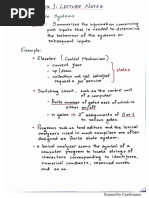 1: LECTURE NOTES
Systems
- Summarizes the information concerning
past inputs that is needed to determine
the behaviour of the system on
subsequent inputs.
Example:
- Elevator (Control Mechanism)
- current floor
- up/down
- collection not yet satisfied
request for service.
states
- Switching circuit, such as the control unit
of a computer
- finite number of gates each of which is
either
- n gates, 2ⁿ assignments of 0 or 1
to various gates.
- Programs such as text editors and the lexical
analyzers used in most compilers are often
designed as finite state
- a lexical analyzer scans the symbol of a
computer program to locate strings of
characters corresponding to identifiers,
numerical constants, reserved words
and so on.
Scanned by CamScanner